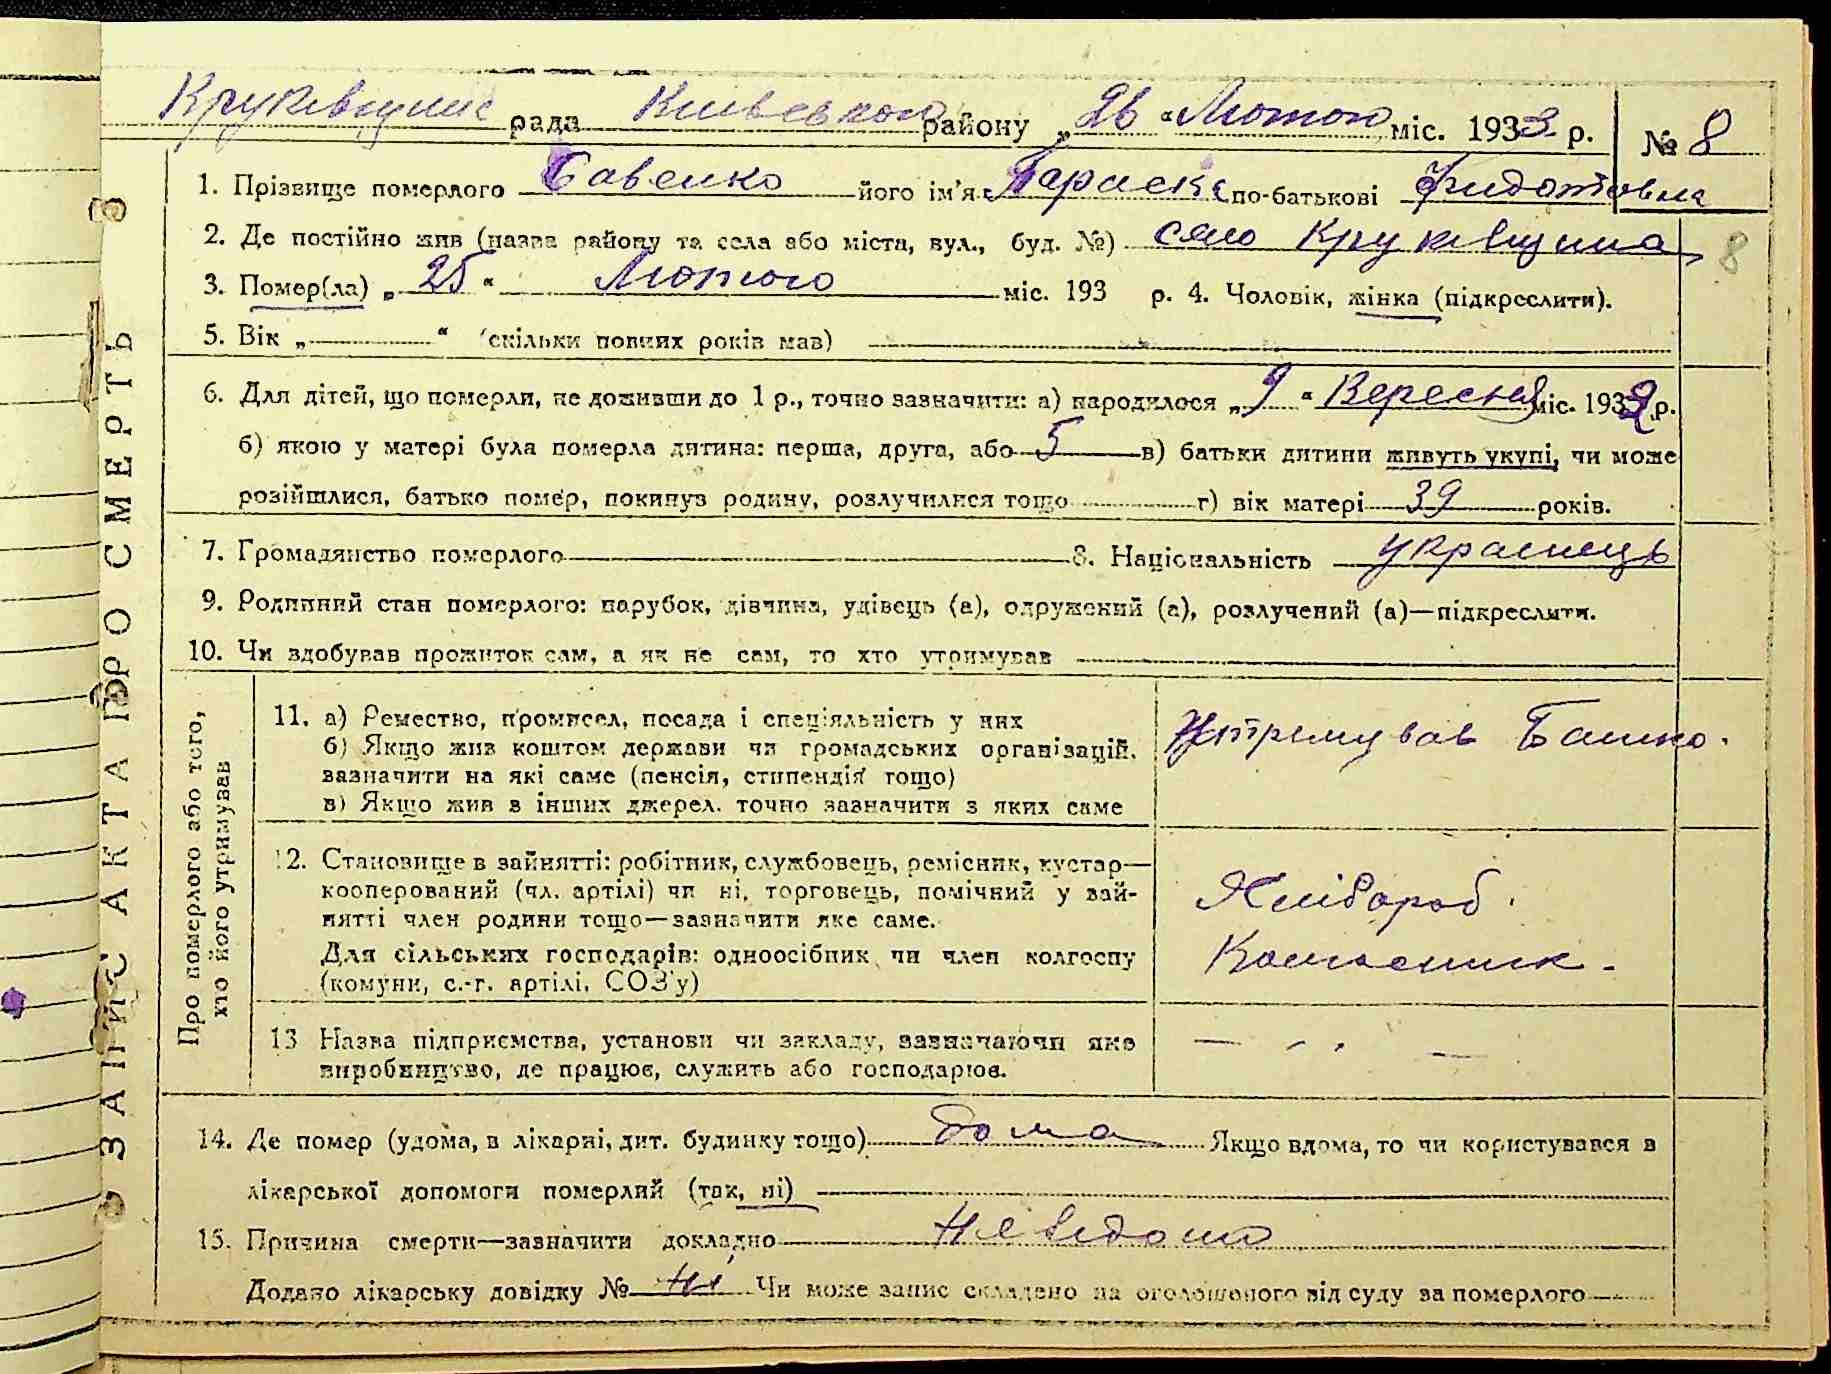 Круківщинс рада Київського району „26“ Лютого міс. 1933 р. № 8
1. Прізвище померлого Савенко його ім'я Параска по-батькові Фидотовна
2. Де постійно жив (назва району та села або міста, вул., буд. №) село Круківщина
8
3. Помер(ла) „25“ Лютого міс. 193 р. 4. Чоловік, жінка (підкреслити).
5. Вік „ “ (скільки повних років мав)
6. Для дітей, що померли, не доживши до 1 р., точно зазначити: а) народилося „9“ Вересня міс. 1932 р.
б) якою у матері була померла дитина: перша, друга, або 5 в) батьки дитини живуть укупі, чи може
розійшлися, батько помер, покинув родину, розлучилися тощо г) вік матері 39 років.
7. Громадянство померлого 8. Національність Українець
9. Родинний стан померлого: парубок, дівчина, удівець (а), одружений (а), розлучений (а)—підкреслити.
10. Чи здобував прожиток сам, а як не сам, то хто утримував
Про померлого або того,
хто його утримував
11. а) Ремество, промисел, посада і спеціяльність у них
б) Якщо жив коштом держави чи громадських організацій,
зазначити на які саме (пенсія, стипендія тощо)
в) Якщо жив з інших джерел, точно зазначити з яких саме
Утримував Батько.
12. Становище в зайнятті: робітник, службовець, ремісник, кустар—
кооперований (чл. артілі) чи ні, торговець, помічний у зай-
нятті член родини тощо—зазначити яке саме.
Для сільських господарів: одноосібник чи член колгоспу
(комуни, с.-г. артілі, СОЗ'у)
Хлібороб.
Колгосник.
13 Назва підприємства, установи чи закладу, зазначаючи яке
виробництво, де працює, служить або господарює.
14. Де помер (удома, в лікарні, дит. будинку тощо) дома Якщо вдома, то чи користувався в
лікарської допомоги померлий (так, ні)
15. Причина смерти—зазначити докладно Невідома
Додано лікарську довідку № ні Чи може запис складено на оголошеного від суду за померлого
ЗАПИС АКТА ПРО СМЕРТЬ 8